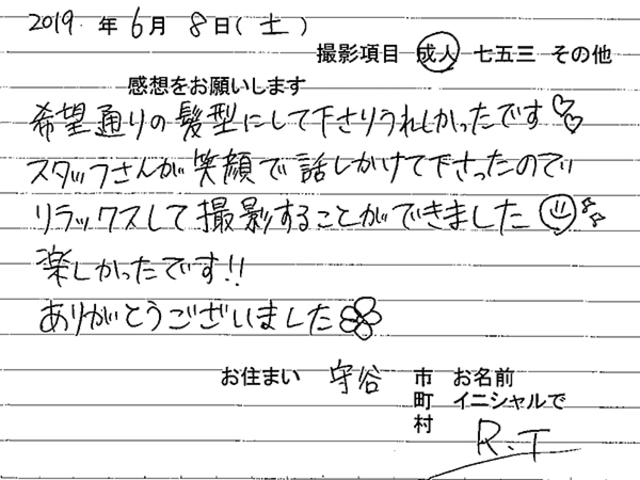 2019 年 6月 8日(土)
撮影項目 成人 七五三 その他
感想をお願いします
希望通りの髪型にして下さりうれしかったです♡♡
スタッフさんが笑顔で話しかけて下さったので
リラックスして撮影することができました
楽しかったです!!
ありがとうございました
お住まい 守谷 市 お名前
町 イニシャルで
村 R.T